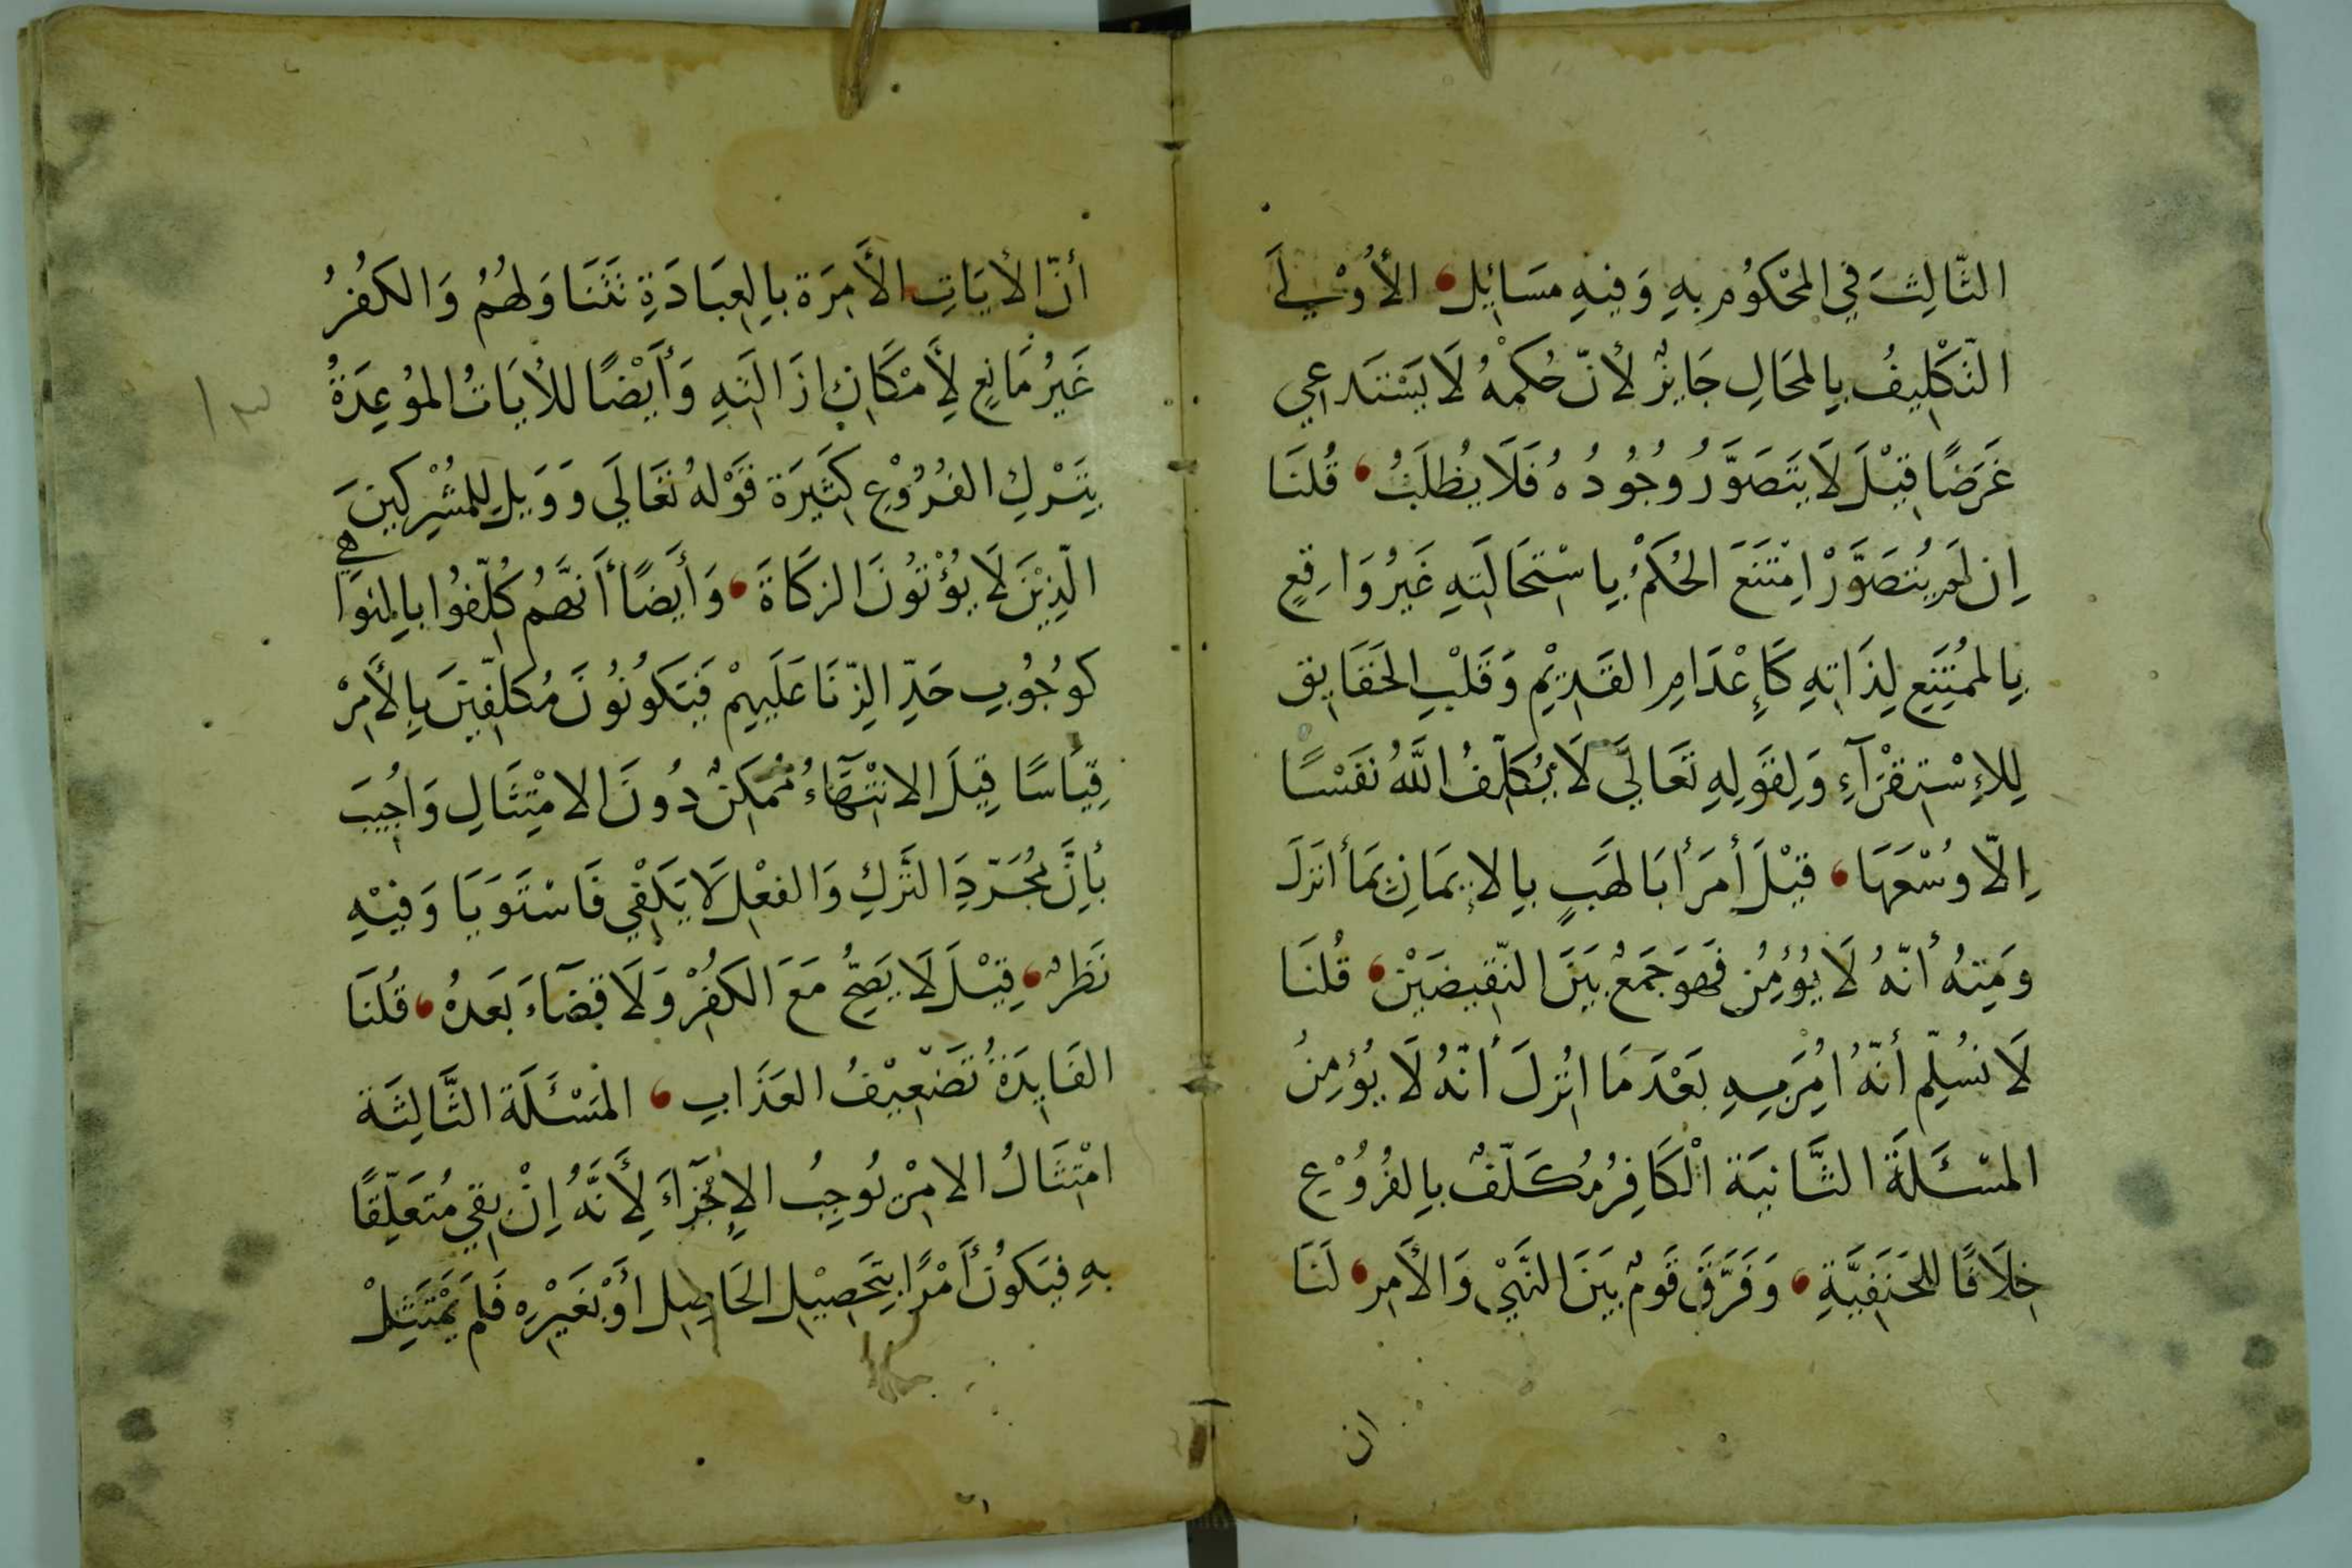 الثَّالِثَ فِي المَحْكُومِ بِهِ وَفِيهِ مَسَائِل الأُوْلَى
التَّكْلِيفُ بِالمحَالِ جَايِزٌ لأَنّ حُكمهُ لَا يَسْتَدعِي
غَرَضًا قِيْلَ لَا يَتَصَوَّرُ وُجُودُهُ فَلَا يُطْلَبُ قُلنَا
اِن لَم يُتَصَوَّرْ اِمْتَنَعَ الحُكْمُ بِاسْتِحَالَتِهِ غَيرُ وَاقِعٍ
بِالممُتَنِعِ لِذَاتِهِ كَإِعْدَامِ القَدِيْمِ وَقَلْبِ الحَقَايِق
لِلإِسْتِقْرَآءِ وَلِقَولِهِ تَعَالَى لَا يُكَلِّفُ اللَّهُ نَفْسًا
اِلّا وُسْعَهَا قِيْلَ أَمرَ أَبَا لَهَبٍ بِالإِيمَانِ بِمَا أَنزَلَ
وَمِنهُ أَنّهُ لَا يُؤْمِن فَهوَ جَمعٌ بَيَنَ النَّقِيضَيْنِ قُلنَا
لَا نسُلّم أَنّهُ اُمِرَ بِهِ بَعْدَ مَا اُنزِلَ أَنّهُ لَا يُؤمِنُ
المسْئَلَةَ الثَّانِيَة اَلْكَافِرُ مُكَلّفٌ بِالفُرُوْعِ
خِلَافًا لِلحَنَفِيَّةِ وَفَرَّقَ قَومٌ بَيَنَ النَّهْيِ وَالأَمرِ لَنَا
ان
أنّ الأيَاتِ الأَمِرَة بِالعِبَادَةِ تَتَنَاوَلهُمُ وَالكُفُرُ
غَيرُ مَانِعٍ لأَِمْكَانِ اِزَالَتِهِ وَأَيْضًا للأيَاتُ الموُعِدَةُ
بِتَرْكِ الفُرُوْعِ كَثِيَرَة قَوْلهُ تَعَالَي وَوَيل لِلمشُرِكِينَ
الّذِيْنَ لَا يُؤْتُونَ الزكَاةَ وَأَيضًا أَنَّهُم كُلّفُوا بِالمنَوَاهِي
كَوُجُوبِ حَدِّ الزِّنَا عَلَيهِمْ فَيَكَونُونَ مُكَلّفِينَ بِالأَمِرْ
قِيَاسًا قِيلَ الانتْهَآءُ مُمكِنٌ دُونَ الامتِثَالِ وَاُجِيبَ
بأِنَّ مجُرّدَ التَّركِ وَالفعْلِ لَا يَكفِي فَاسْتَوَيَا وَفِيْهِ
نَظَرٌ قِيْلَ لَا يَصِحُّ مَعَ الكُفْرِ وَلَا قضَآءَ بَعَدهُ قُلنَا
الفَايِدَةُ تَضْعِيْفُ العَذَابِ المَسْئَلَة الثَّالِثَة
امْتِثَالُ الامْرِ يُوجِبُ الإِجْزَآءَ لِأَنَّهُ اِنْ بقِيَ مُتَعَلّقًا
بهِ فَيكونُ أَمْرًا بِتَحصِيْلِ الحَاصِلِ أَوْ بغَيْرِهِ فَلَم يَمْتَثِلْ
١٣